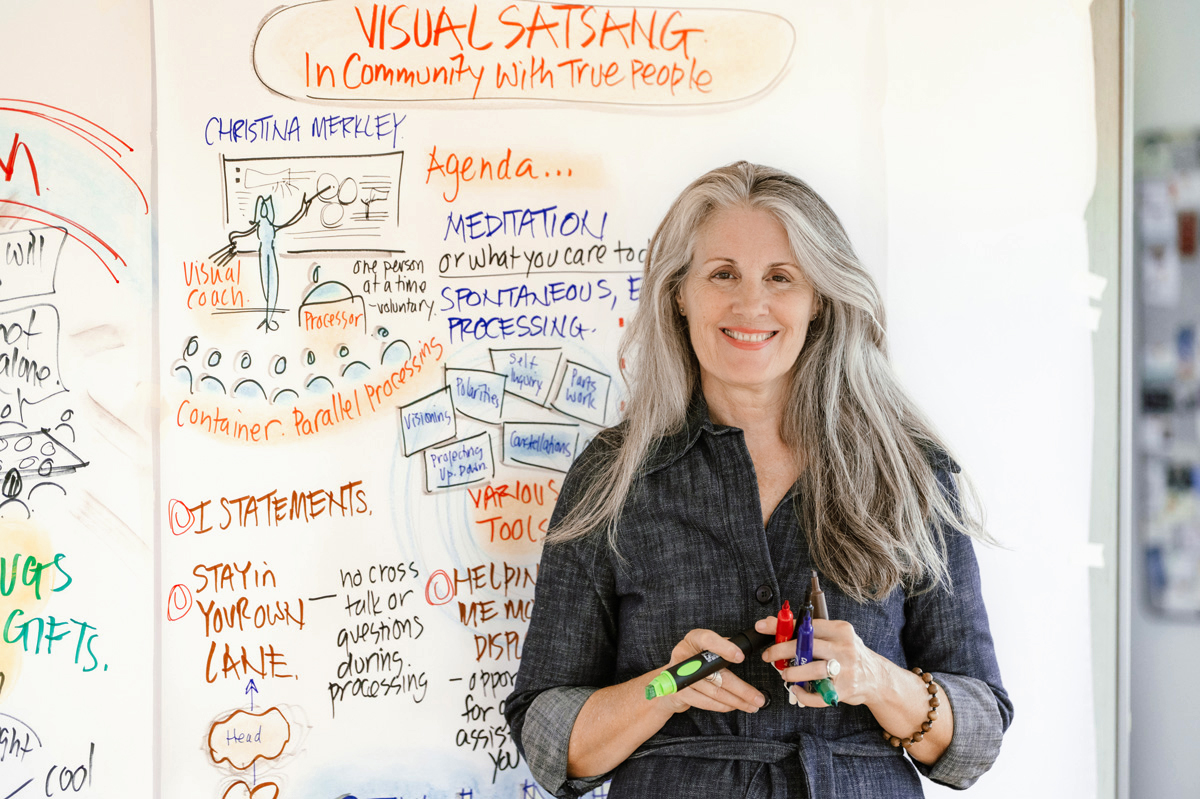 VISUAL SATSANG
In Community with True People
CHRISTINA MERKLEY
Agenda...
MEDITATION
or what you care to
SPONTANEOUS,
PROCESSING.
Visual
coach.
Processor
one person
at a time
-voluntary.
Container. Parallel Processing
Self
Inquiry
Polarities
Parts
Work
Visioning
Projecting
Up. Down.
Constellations
VARIOUS
TOOLS
I STATEMENTS.
STAY in
YOUR OWN
LANE.
- no cross
talk or
questions
during.
processing
HELPIN
ME MO
DISPL
- oppor
for
assis
you
Head
will
not
alone.
UGS
GIFTS.
ght
cool